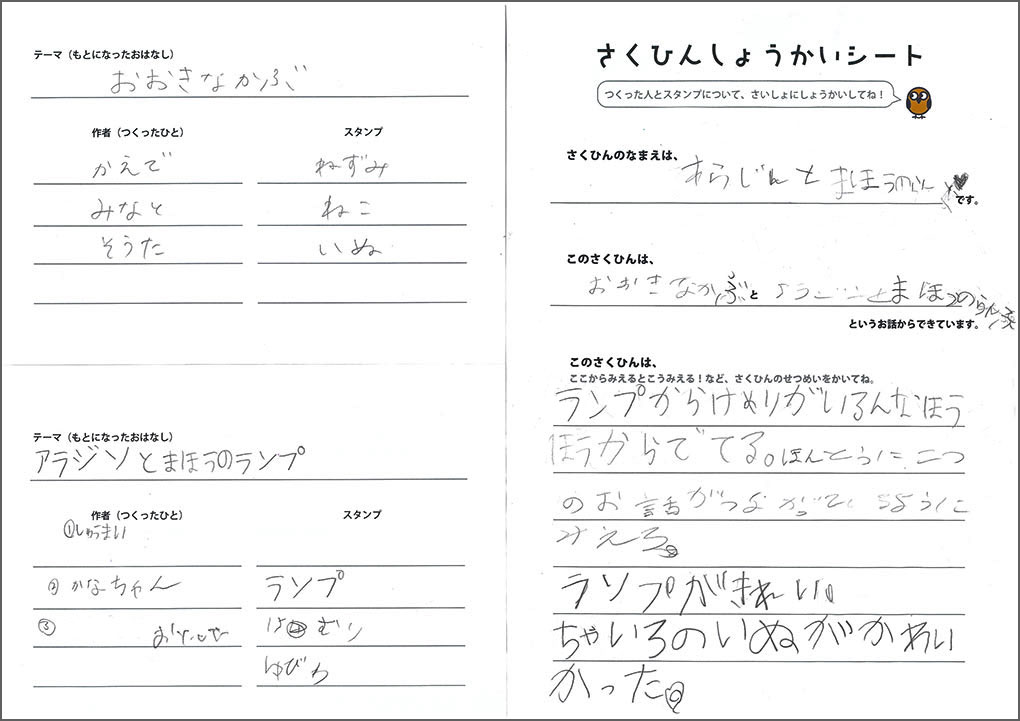 テーマ（もとになったおはなし）
おおきなかぶ
作者（つくったひと） スタンプ
かえで ねずみ
みなと ねこ
そうた いぬ
テーマ（もとになったおはなし）
アラジンとまほうのランプ
作者（つくったひと） スタンプ
①しゅうまい
② かなちゃん ランプ
③ けむり
ゆびわ
さくひんしょうかいシート
つくった人とスタンプについて、さいしょにしょうかいしてね！
さくひんのなまえは、
あらじんとまほうのらん
です。
このさくひんは、
おおきなかぶと まほうのらんぷ
というお話からできています。
このさくひんは、
ここからみえるとこうみえる！など、さくひんのせつめいをかいてね。
ランプからけむりがいろんなほう
ほうからでてる。ほんとうに二つ
のお話がつながってるように
みえる。
ランプがきれい。
ちゃいろのいぬがかわい
かった。